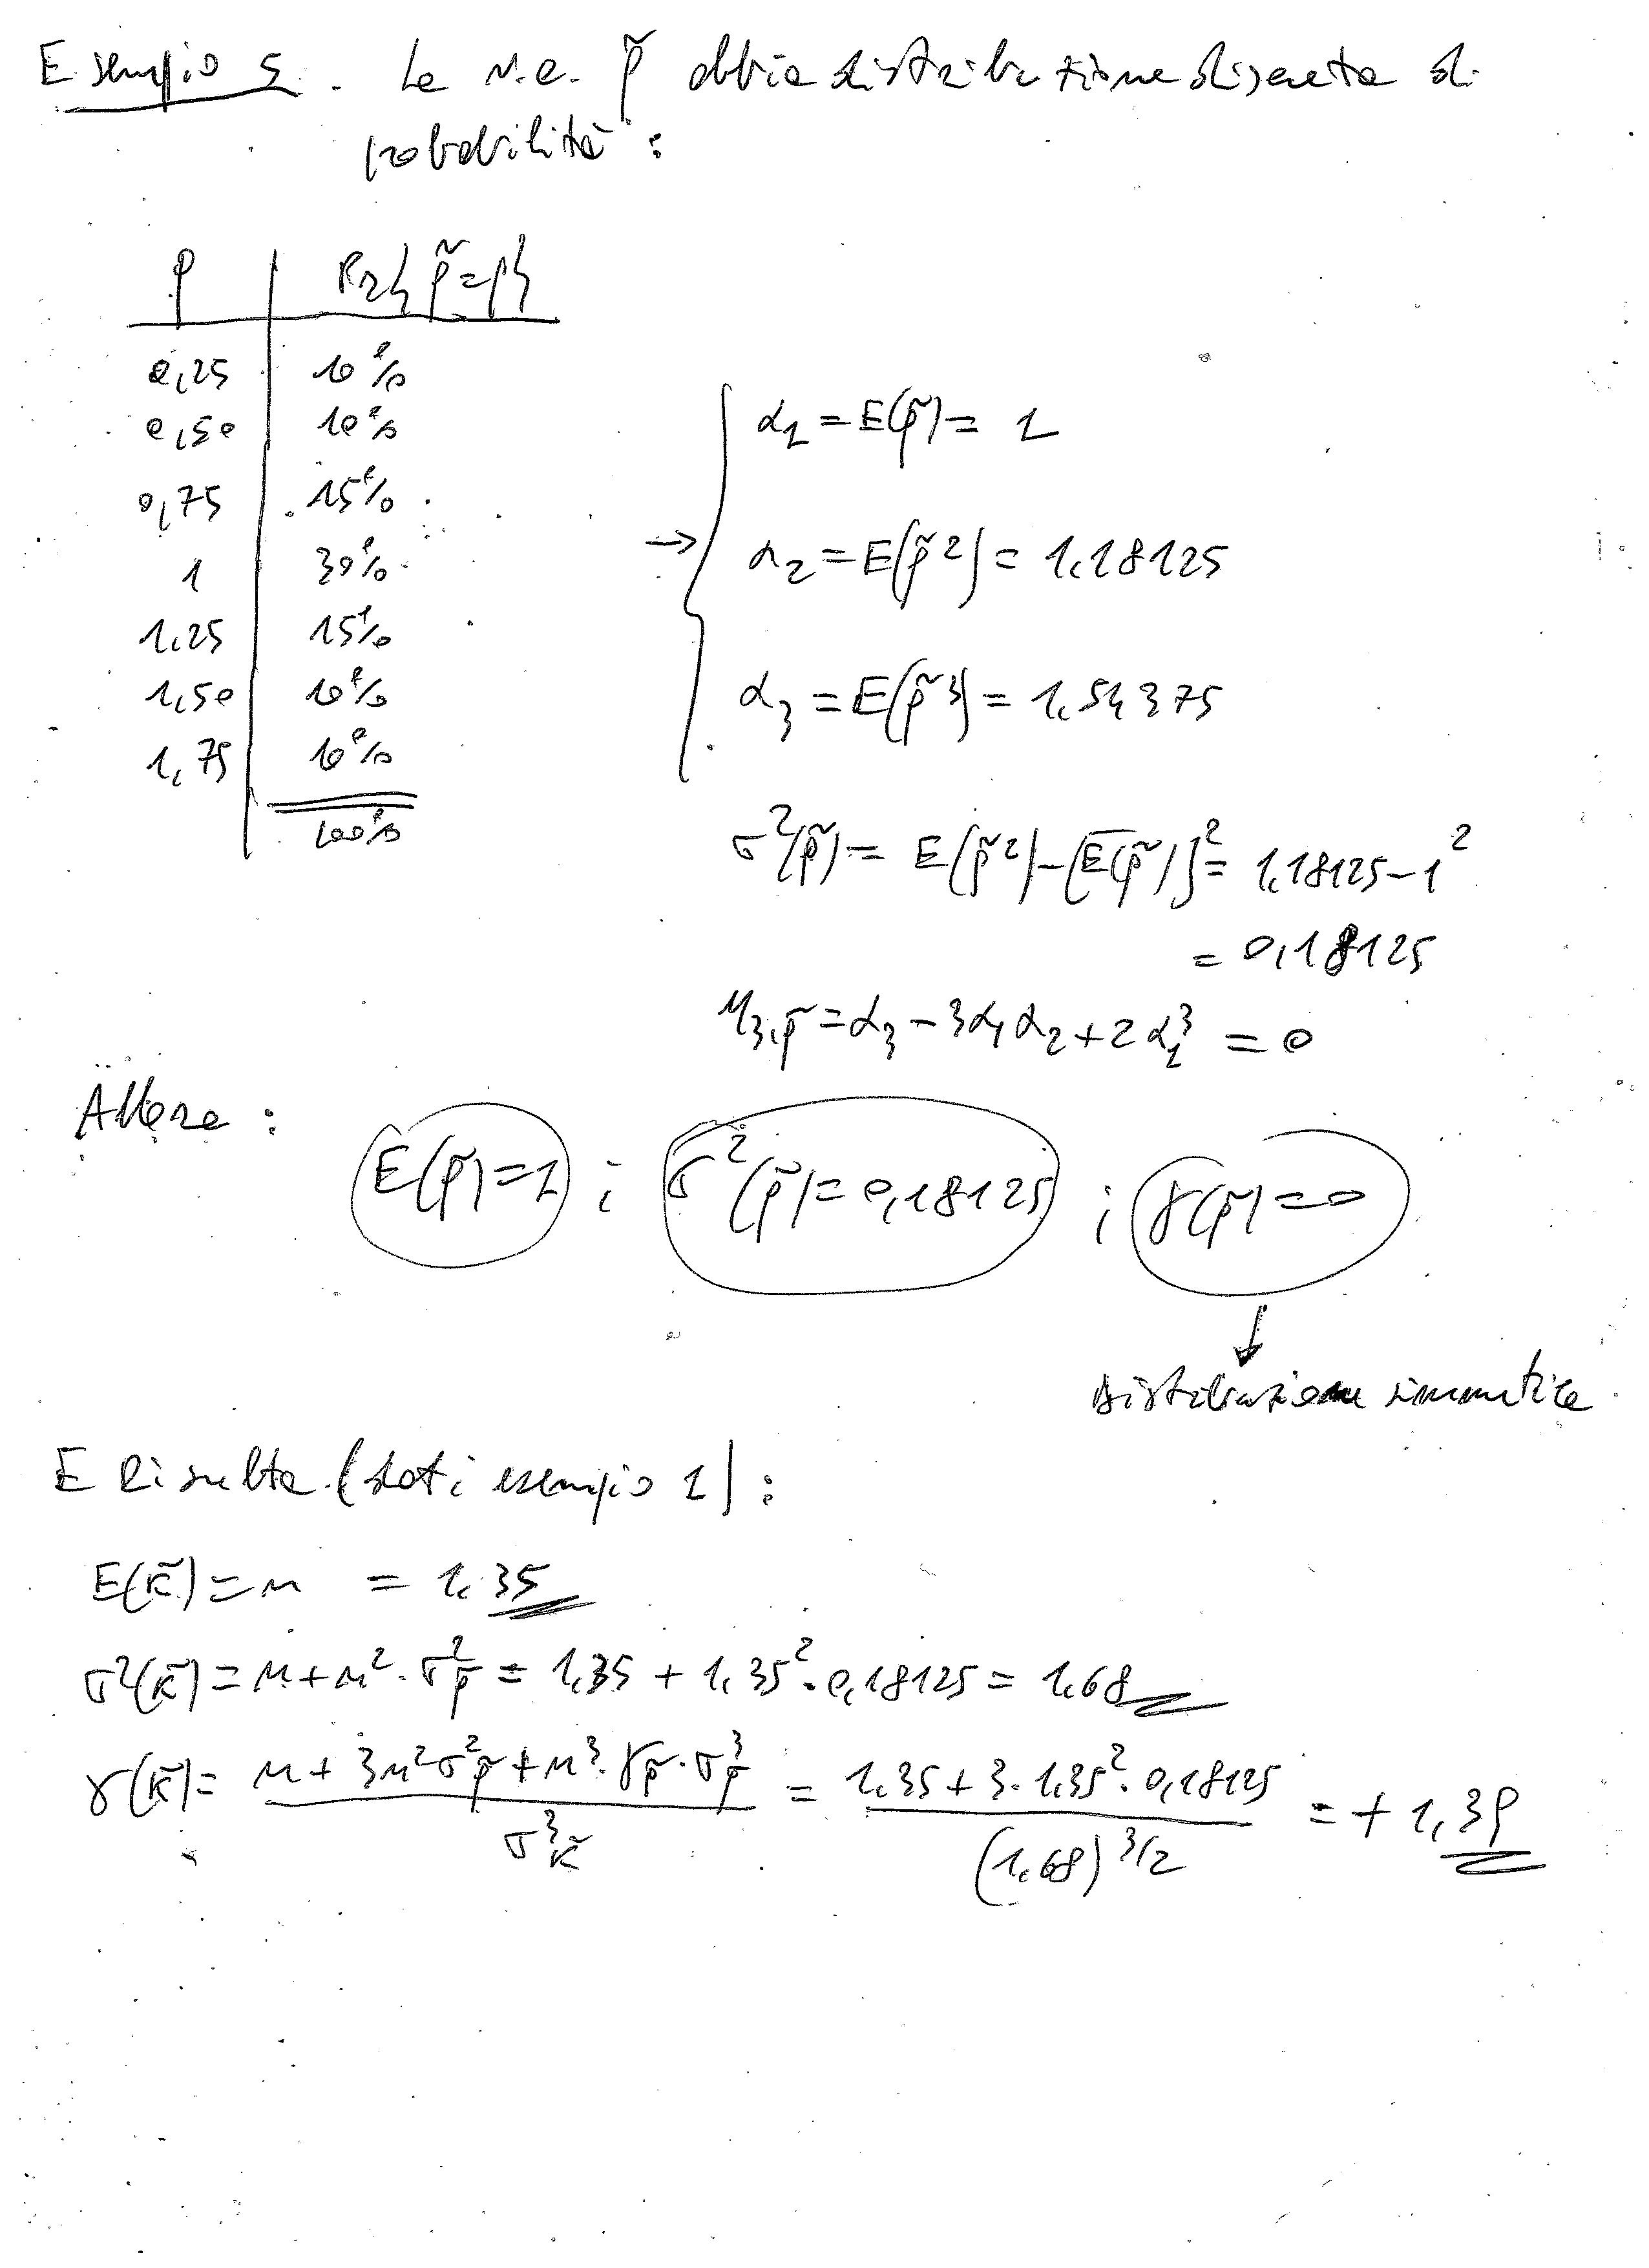 Esempio 5. La v.a. ρ̃ abbia distribuzione discreta di
probabilità:
ρ | Pr{ρ̃=ρ}
0,25 | 10%
0,50 | 10%
0,75 | 15%
1 | 30%
1,25 | 15%
1,50 | 10%
1,75 | 10%
100%
→ { α₁ = E(ρ̃) = 1
α₂ = E(ρ̃²) = 1,18125
α₃ = E(ρ̃³) = 1,54375
σ²(ρ̃) = E(ρ̃²) - [E(ρ̃)]² = 1,18125 - 1²
= 0,18125
μ₃,ρ̃ = α₃ - 3α₁α₂ + 2α₁³ = 0
Allora:
E(ρ̃)=1 ; σ²(ρ̃)=0,18125 ; γ(ρ̃)=0
↓
distribuzione simmetrica
E risulta (dati esempio 1):
E(K̃) = n = 1,35
σ²(K̃) = n + n² · σ²ρ̃ = 1,35 + 1,35² · 0,18125 = 1,68
γ(K̃) = (n + 3n²σ²ρ̃ + n³ · γρ̃ · σ³ρ̃) / σ³K̃ = (1,35 + 3 · 1,35² · 0,18125) / (1,68)^3/2 = + 1,39